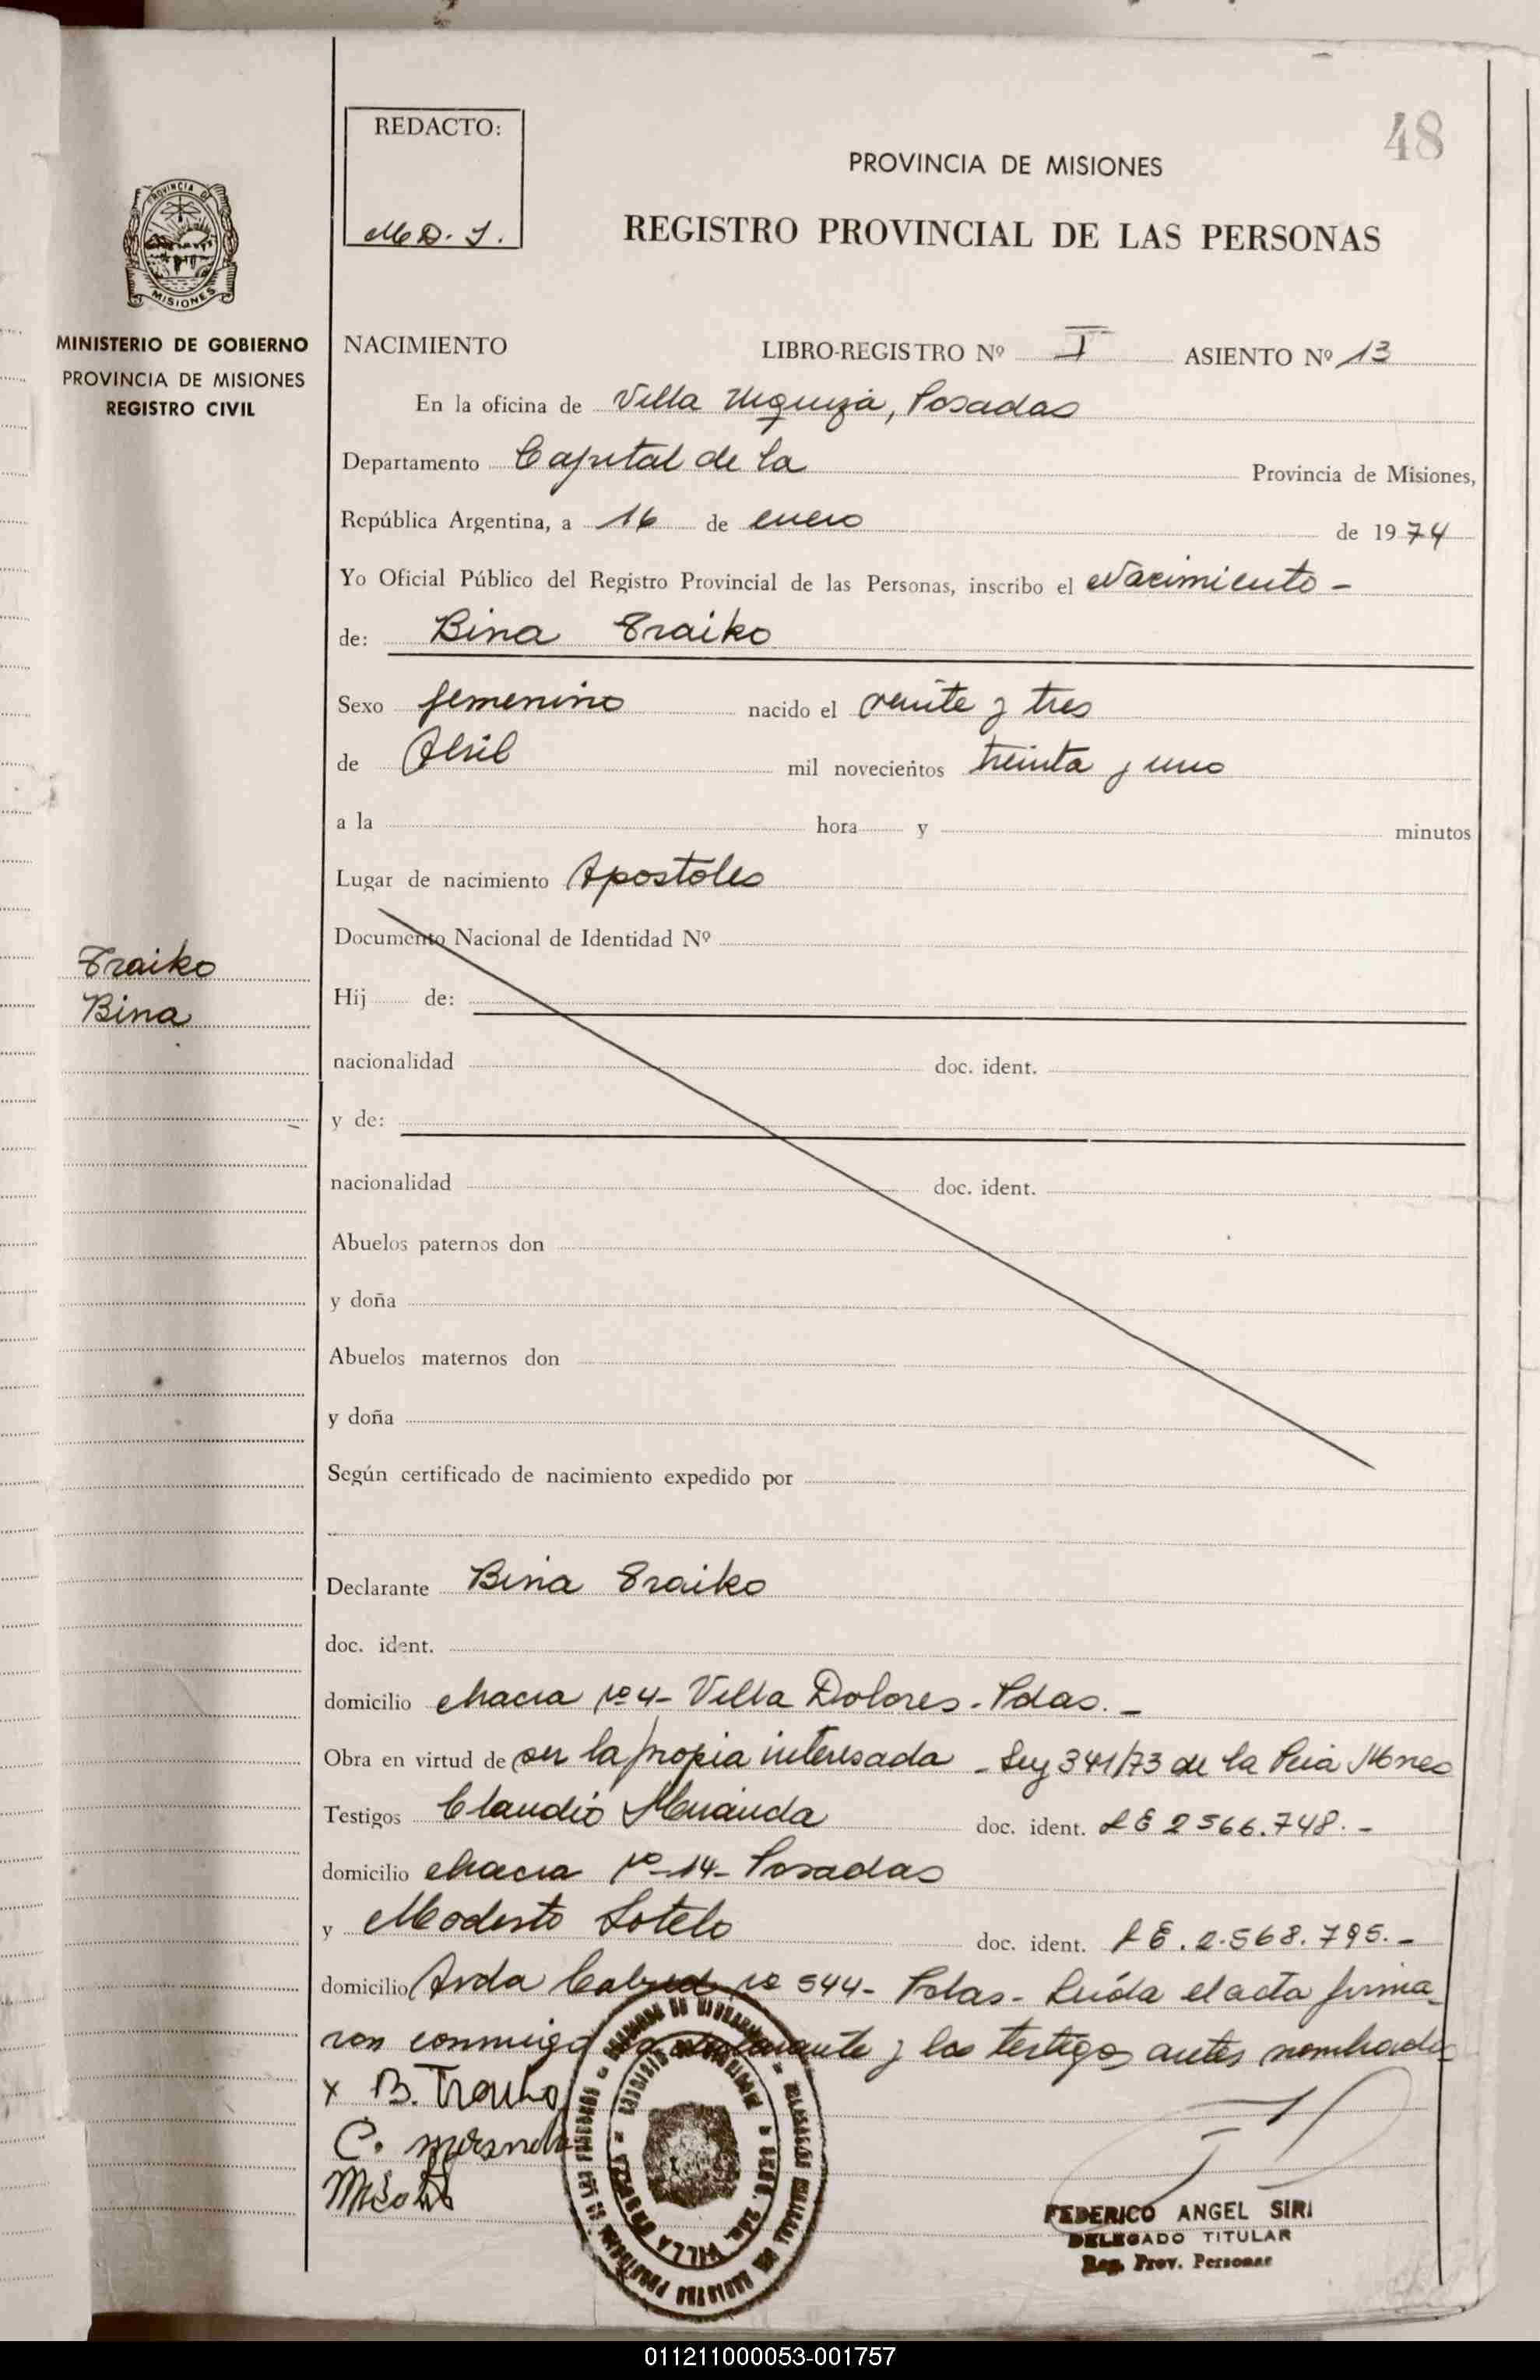 48
REDACTO:
M D. S.
PROVINCIA DE MISIONES
REGISTRO PROVINCIAL DE LAS PERSONAS
PROVINCIA DE
MISIONES
MINISTERIO DE GOBIERNO
PROVINCIA DE MISIONES
REGISTRO CIVIL
NACIMIENTO LIBRO-REGISTRO Nº I ASIENTO Nº 13
En la oficina de Villa Urquiza, Posadas
Departamento Capital de la Provincia de Misiones,
República Argentina, a 16 de enero de 1974
Yo Oficial Público del Registro Provincial de las Personas, inscribo el Nacimiento -
de: Bina Traiko
Sexo femenino nacido el veinte y tres
de Abril mil novecientos treinta y uno
a la hora y minutos
Lugar de nacimiento Apostoles
Documento Nacional de Identidad Nº
Traiko
Bina
Hij de:
nacionalidad doc. ident.
y de:
nacionalidad doc. ident.
Abuelos paternos don
y doña
Abuelos maternos don
y doña
Según certificado de nacimiento expedido por
Declarante Bina Traiko
doc. ident.
domicilio chacra Nº 4- Villa Dolores - Pdas. -
Obra en virtud de ser la propia interesada - Ley 341/73 de la Pcia Mnes
Testigos Claudio Miranda doc. ident. LE 2566.748. -
domicilio chacra Nº -14- Posadas
y Modesto Sotelo doc. ident. LE. 2.568.795. -
domicilio Avda Nº 544- Pdas- Leída el acta firma-
ron conmigo la declarante y los testigos antes nombrados
x B. Traiko
C. Miranda
VILLA URQUIZA
FEDERICO ANGEL SIRI
DELEGADO TITULAR
Reg. Prov. Personas
011211000053-001757